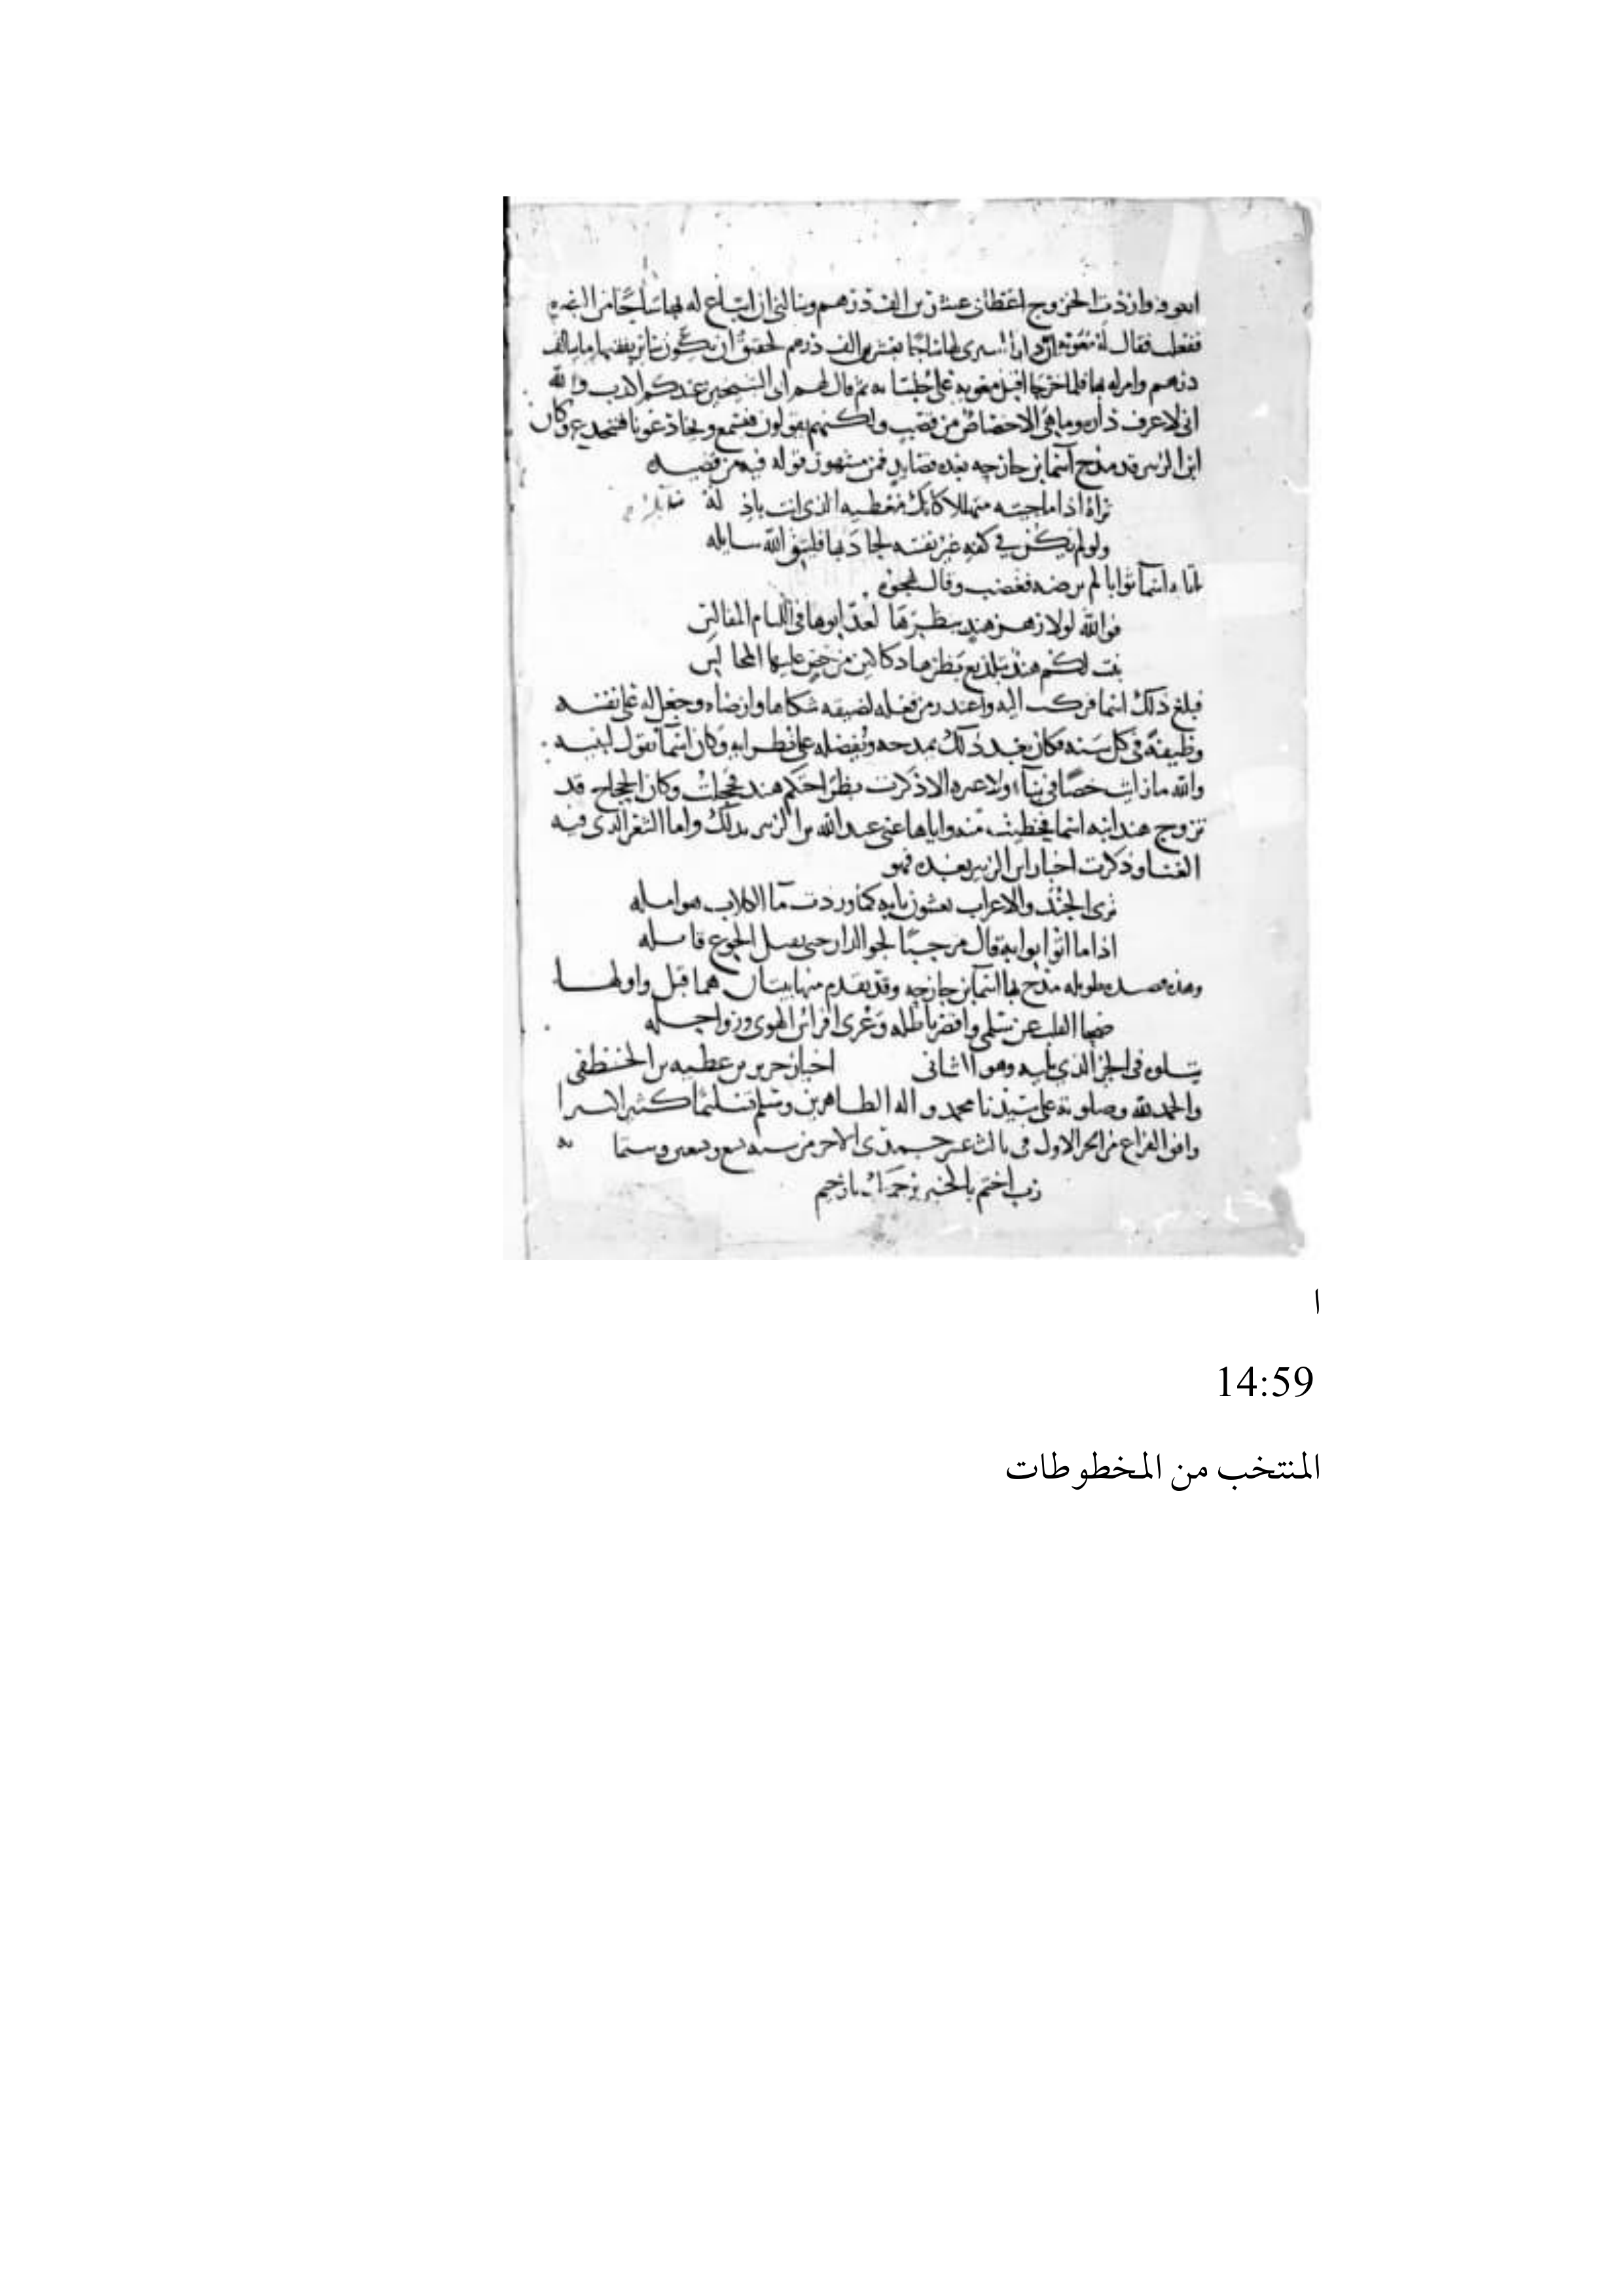 واردت الخروج اعطاني عشرين الف درهم وسالني ان ابتاع له بها ساجا من البصره
ففعلت فقال له معويه دار اشترى لها ساجا بعشرين الف درهم لحقيق ان يكون
درهم وامر له بها فلما خرجا اقبل معويه على جلسائه ثم قال لهم اى الشيخين عندكم اكذب والله
انى لاعرف داره وما هى الا خصاص من قصب ولكنهم يقولون فنسمع ويخادعونا فننخدع وكان
ابن الزبير قد مدح اسما بن خارجه بعده فمن مشهور قوله فيه من قصيده
تراه اذا ما جيته متهللا كانك تعطيه الذى انت
ولو لم يكن في كفه غير نفسه لجاد بها فليتق الله سايله
اسما ثوابا لم يرضه فغضب وقال يهجوه
فوالله لولا رهز هند ببظرها لعد ابوها في اللئام
بنت لكم هند بتلذيع بظرها دكاكين من جص عليها المجالس
فبلغ ذلك اسما فركب اليه واعتذر من فعله لضيقه شكاها وارضاه وجعل له على نفسه
وظيفة في كل سنه فكان بعد ذلك يمدحه ويفضله وكان اسما يقول لبنيه
والله ما رايت جصا في بنآ ولا غيره الا ذكرت بظر امكم هند فخجلت وكان الحجاج قد
تزوج هند ابنه اسما عبد الله بن الزبير بذلك واما الشعر الذى فيه
الغنا وذكرت اخبار ابن الزبير بعده فهو
ترى الجند والاعراب يغشون بابه كما وردت مآ الكلاب هوامله
اذا ما اتوا ابوابه قال مرحبا لجوا الدار حتى يقتل الجوع قاتله
وهذه قصيده طويله مدح بها اسما بن خارجه وقد تقدم منها بيتان هما قبل واولها
صحا القلب عن سلمى واقصر باطله وعرى افراس الهوى ورواحله
يتلوه فى الجز الذى يليه وهو الثانى اخبار جرير بن عطيه بن الخطفى
والحمد لله وصلوته على سيدنا محمد واله الطاهرين وسلم تسليما كثيرا
وافق الفراغ من الجز الاول فى ثالث عشر جمدى الاخر من سنه
رب اختم بالخير برحمتك يا رحيم
ا
14:59
المنتخب من المخطوطات